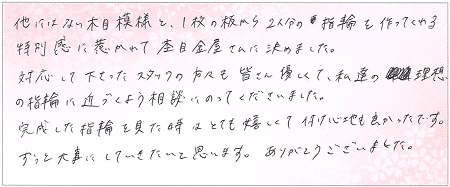 他にはない木目模様と、1枚の板から2人分の指輪を作ってくれる
特別感に惹かれて杢目金屋さんに決めました。
対応して下さったスタッフの方々も皆さん優しくて、私達の理想
の指輪に近づくよう相談にのってくださいました。
完成した指輪を見た時はとても嬉しくて付け心地も良かったです。
ずっと大事にしていきたいと思います。ありがとうございました。